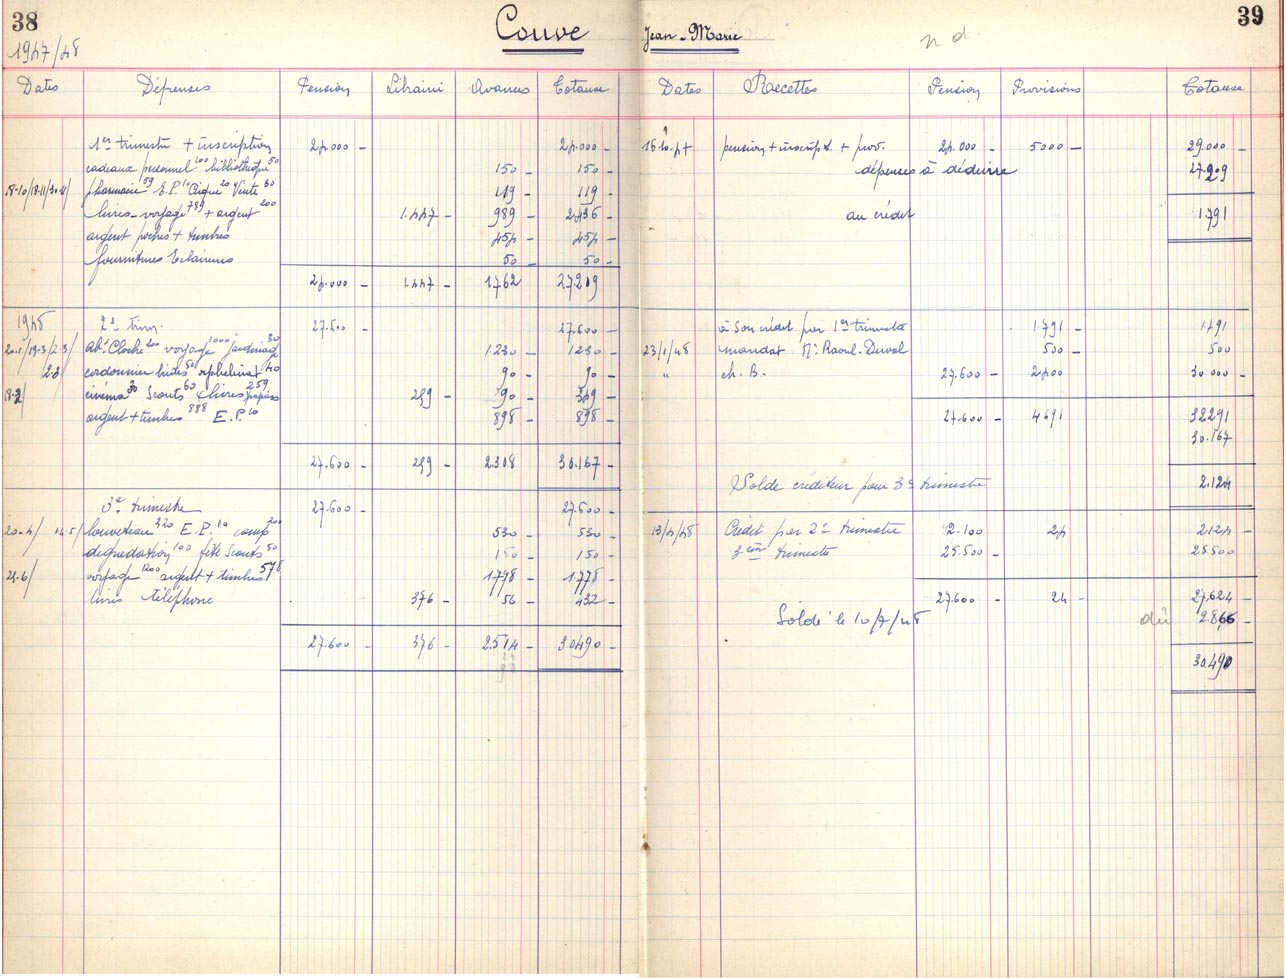 38
1947/48
Couve
Jean-Marie
n d.
39
Dates Dépenses Pension Librairie Avances Totaux
Dates Recettes Pension Provisions Totaux
1er trimestre + inscription 24.000 - 24.000 -
cadeaux personnel 100 bibliothèque 50 150 - 150 -
pharmacie 59 E.P. 10 20 Vente 30 119 - 119 -
livres - voyage 789 + argent 200 1.447 - 989 - 2.436 -
argent poches + timbres 454 - 454 -
fournitures Eclaireurs 50 - 50 -
24.000 - 1.447 - 1762 - 27.209
pension + inscript. + prov. 24.000 - 5000 - 29.000 -
dépenses à déduire 27.209
au crédit 1.791
1948 2e trim. 27.600 - 27.600 -
Abt Cloche 200 voyage 1000 jardinage 30 1230 - 1230 -
2-3 cordonnier 50 orphelinat 40 90 - 90 -
cinéma 30 Scouts 60 livres 259 289 - 90 -
argent + timbres 888 E.P. 10 898 - 898 -
27.600 - 289 - 2.308 - 30.167 -
à son crédit per 1er trimestre 1.791 - 1.791
23/1/48 mandat Raoul-Duval 500 - 500
" ch. B. 27.600 - 2400 30.000 -
27.600 - 4691 32291
30.167
Solde créditeur pour 3e trimestre 2.124
3e trimestre 27.600 - 27.600 -
20-4/ 24.5/ louveteau 320 E.P. 10 camp 200 530 - 530 -
dégradation 100 fête Scouts 50 150 - 150 -
21.6/ voyage 1200 argent + timbres 578 1.778 - 1.778 -
livres téléphone 376 - 56 - 432 -
27.600 - 376 - 2.514 - 30490 -
13/4/48 Crédit per 2e trimestre 2.100 24 2.124 -
3ème trimestre 25.500 - 25.500
27.600 - 24 - 27.624 -
Soldé le 10/7/48 dû 2.866 -
30.490